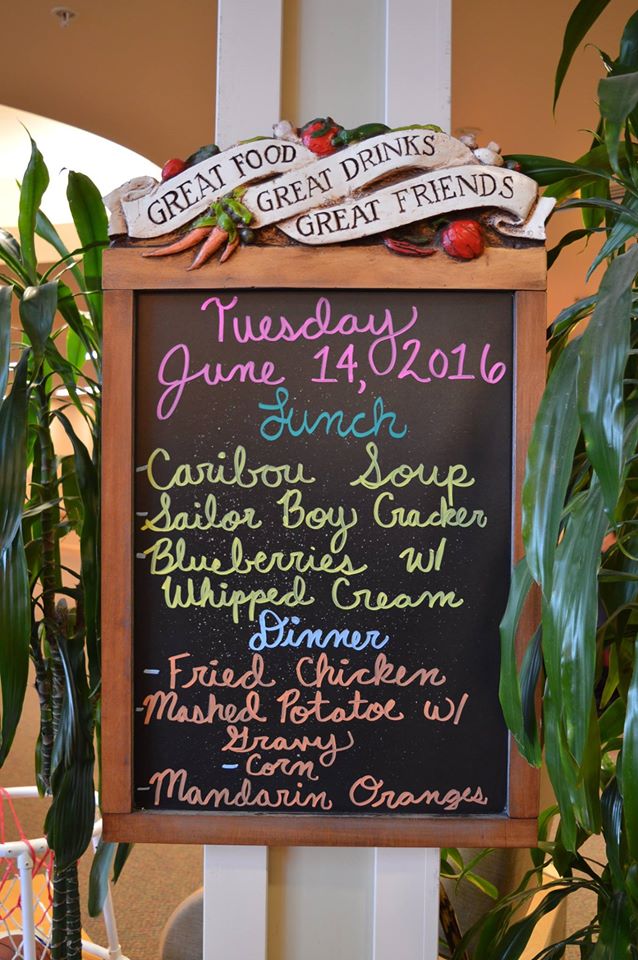 GREAT FOOD
GREAT DRINKS
GREAT FRIENDS
Tuesday
June 14, 2016
Lunch
-Caribou Soup
-Sailor Boy Cracker
-Blueberries w/
Whipped Cream
Dinner
-Fried Chicken
-Mashed Potatoe w/
Gravy
-Corn
-Mandarin Oranges